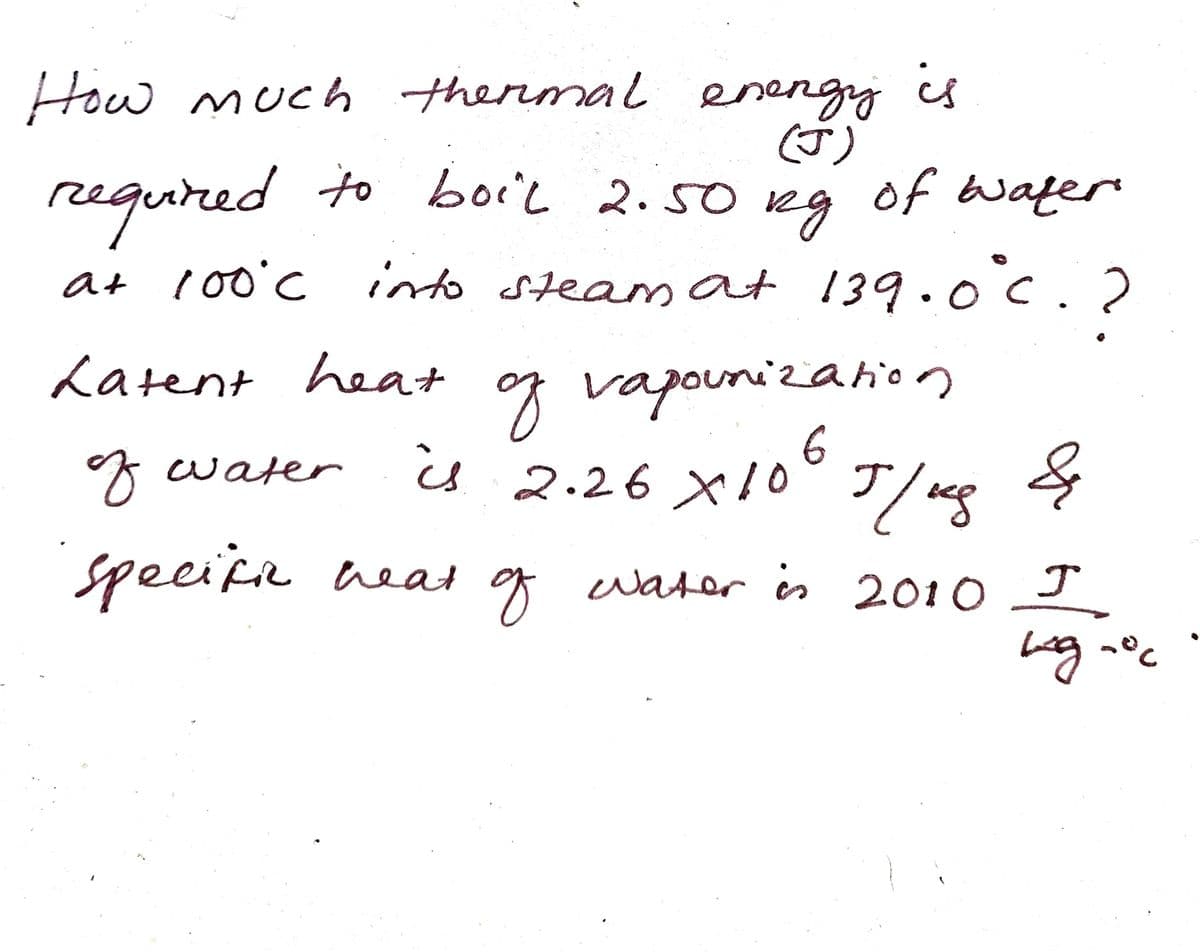 How much thermal energy is
(J)
required to boil 2.50 kg of water
at 100°C into steam at 139.0°C. ?
Latent heat of vapourization
of water is 2.26 x 10⁶ J/kg &
specific heat of water is 2010 J/kg-°C.